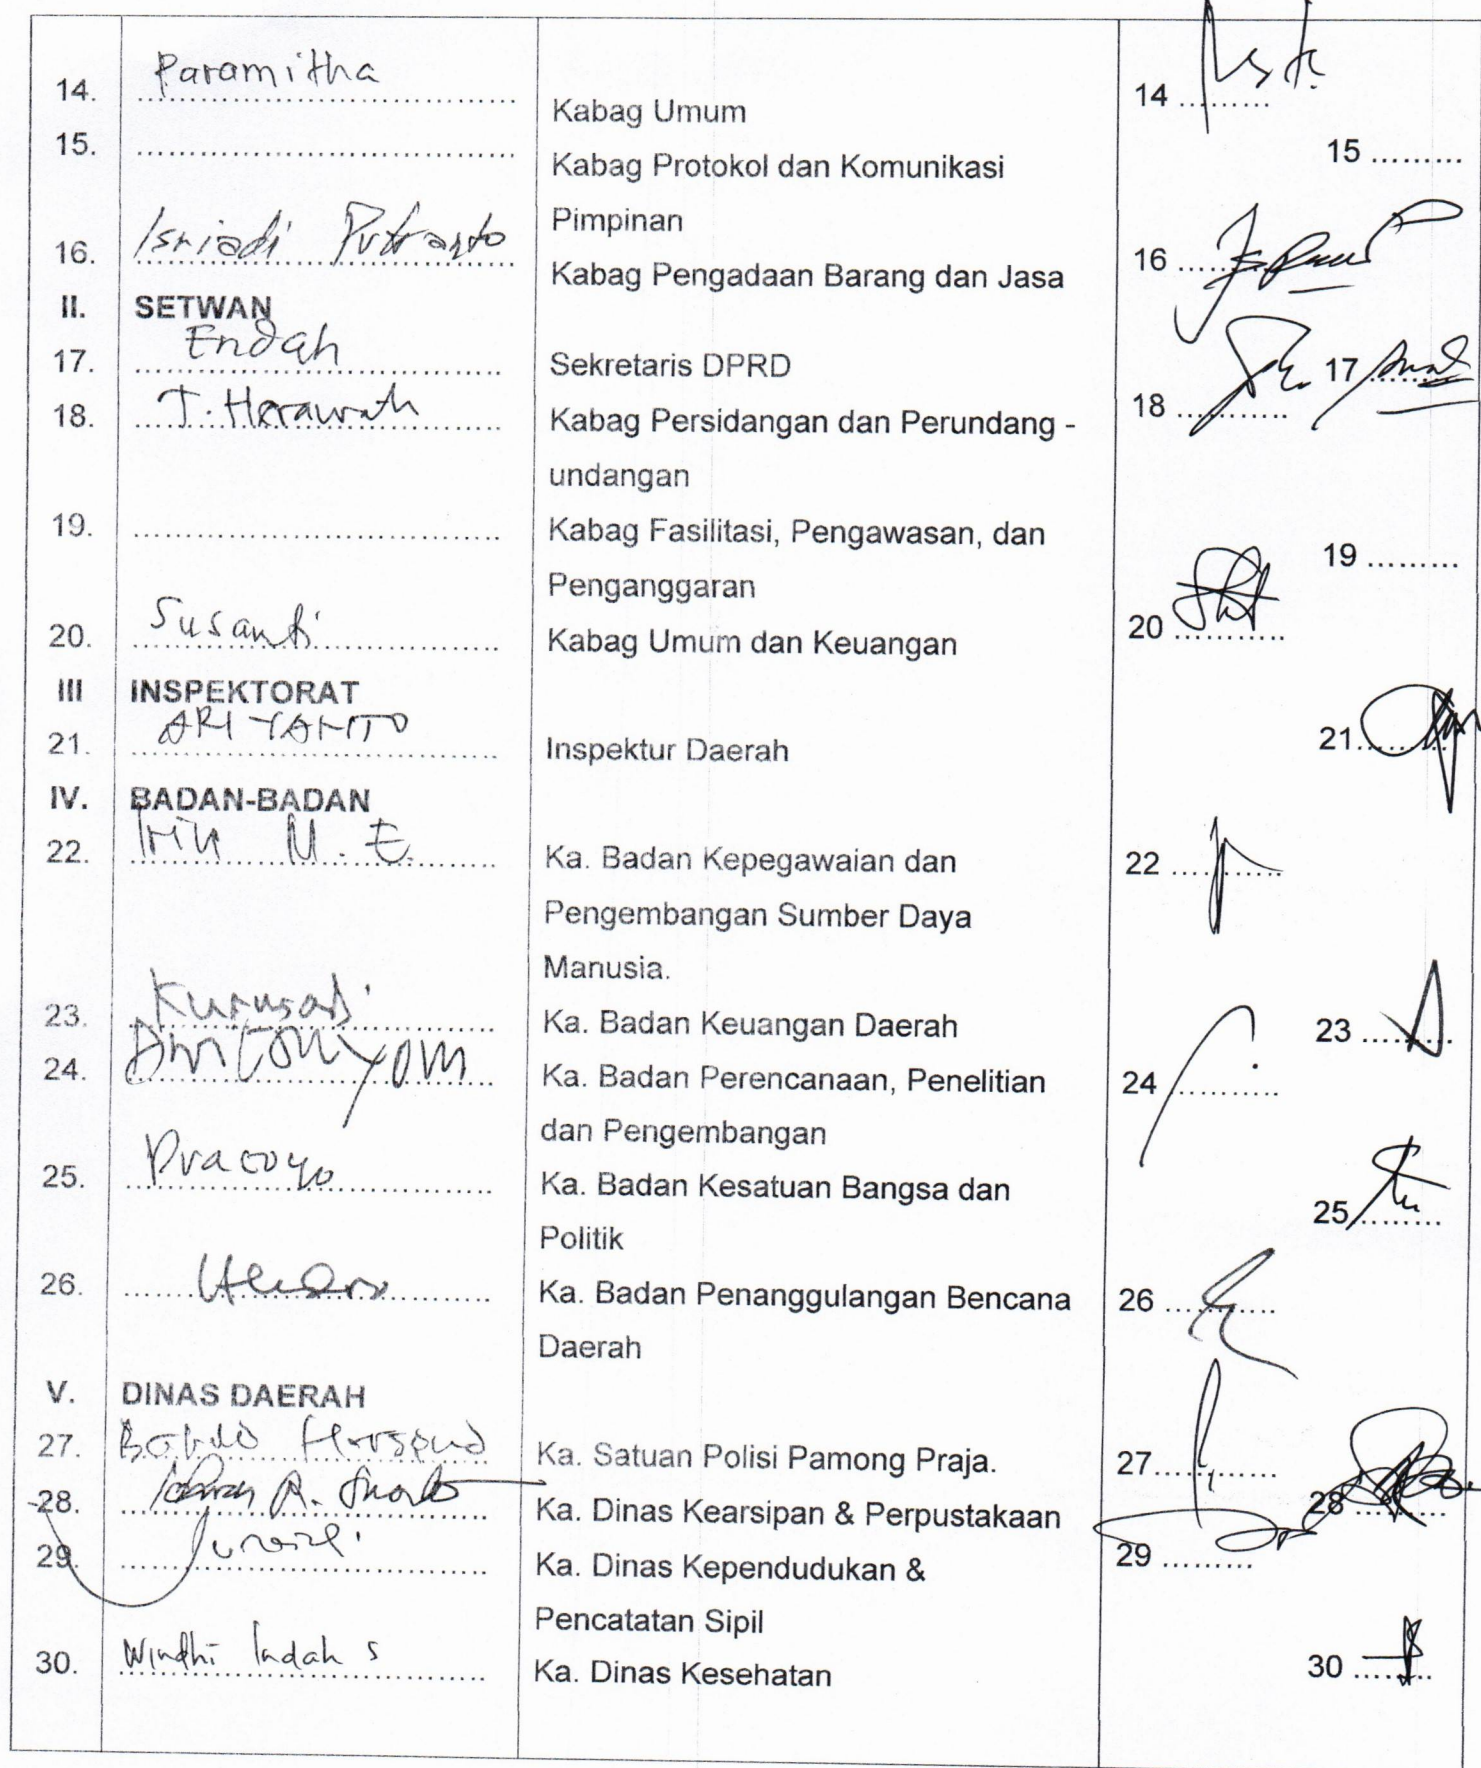 14. Paramitha Kabag Umum 14 .........
15. .................................. Kabag Protokol dan Komunikasi 15 .........
Pimpinan
16. Isriadi Putranto Kabag Pengadaan Barang dan Jasa 16 .........
II. SETWAN
17. Endah Sekretaris DPRD 17 .........
18. T. Herawati Kabag Persidangan dan Perundang - 18 ..........
undangan
19. .................................. Kabag Fasilitasi, Pengawasan, dan 19 .........
Penganggaran
20. Susanti Kabag Umum dan Keuangan 20 ..........
III INSPEKTORAT
21. ARIYANTO Inspektur Daerah 21.........
IV. BADAN-BADAN
22. M. E. Ka. Badan Kepegawaian dan 22 ..........
Pengembangan Sumber Daya
Manusia.
23. Ka. Badan Keuangan Daerah 23 .........
24. Ka. Badan Perencanaan, Penelitian 24 ..........
dan Pengembangan
25. Pracoyo Ka. Badan Kesatuan Bangsa dan 25 .........
Politik
26. Ka. Badan Penanggulangan Bencana 26 ..........
Daerah
V. DINAS DAERAH
27. Ka. Satuan Polisi Pamong Praja. 27..........
28. Ka. Dinas Kearsipan & Perpustakaan 28 .........
29. Junaidi Ka. Dinas Kependudukan & 29 .........
Pencatatan Sipil
30. Windhi Indah S Ka. Dinas Kesehatan 30 .........